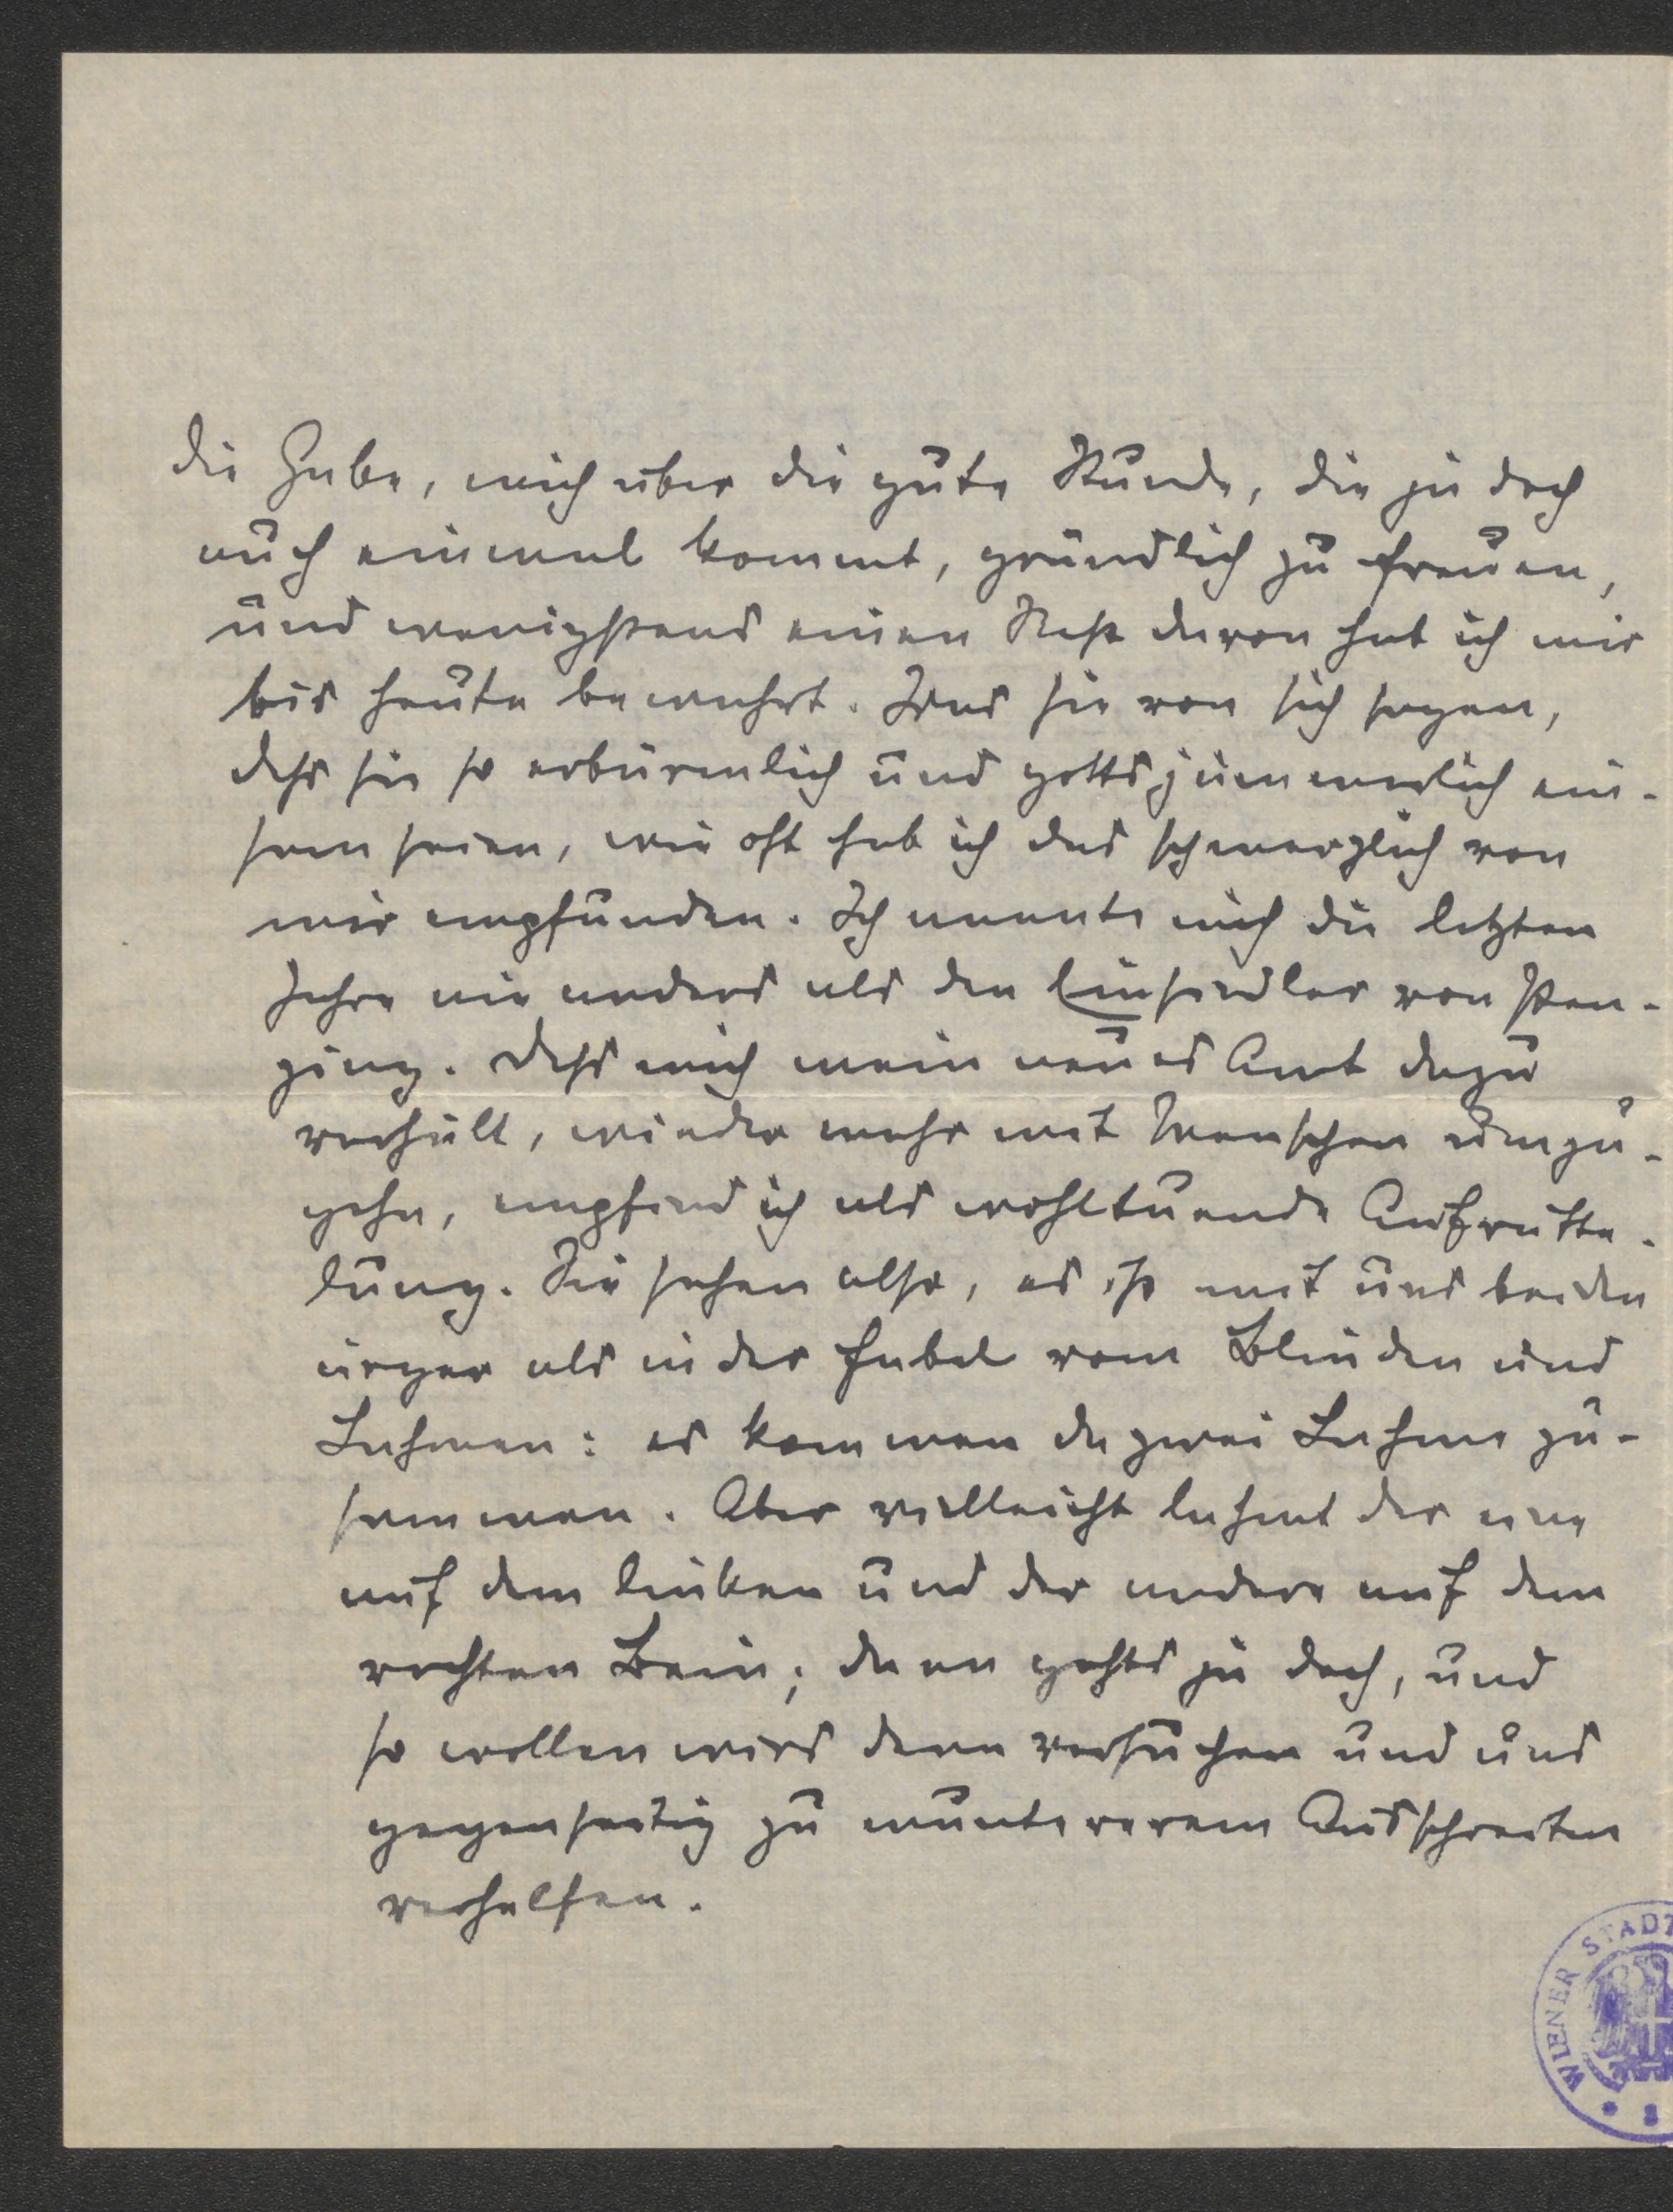 die Gabe, mich über die gute Stunde, die ja doch
auch einmal kommt, gründlich zu freuen,
und wenigstens einen Rest davon hab ich mir
bis heute bewahrt. Was sie von sich sagen,
dass sie so erbärmlich und gottsjämmerlich ein-
sam seien, wie oft hab ich das schmerzlich von
mir empfunden. Ich nannte mich die letzten
Jahre nie anders als den Einsiedler von Pen-
zing. Dass mich mein neues Amt dazu
verhält, wieder mehr mit Menschen umzu-
gehn, empfind ich als wohltuende Aufrütte-
lung. Sie sehen also, es ist mit uns beiden
ärger als in der Fabel vom Blinden und
Lahmen: es kommen da zwei Lahme zu-
sammen. Aber vielleicht lahmt der eine
auf dem linken und der andere auf dem
rechten Bein; dann gehts ja doch, und
so wollen wirs denn versuchen und uns
gegenseitig zu muntererem Ausschreiten
verhelfen.
WIENER STADT